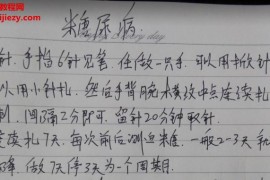 糖尿病
针,手掐6针见效,任做一只手,可以用揿针
以用小针扎,然后手背腕横纹中点连续扎
刺,间隔2分即可,留针20分钟取针
连续扎7天,每次前后测血糖,一般2-3天就
降,做7天停3天为一个周期.